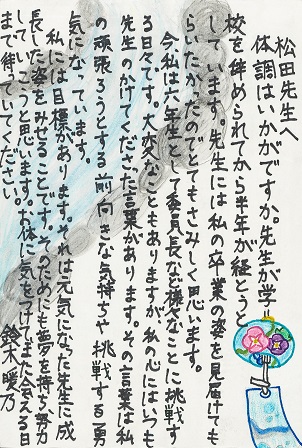 松田先生へ
体調はいかがですか。先生が学
校を辞められてから半年が経とうと
しています。先生には私の卒業の姿を見届けても
らいたかったのでとてもさみしく思います。
今、私は六年生として委員長など様々なことに挑戦す
る日々です。大変なこともありますが、私の心にはいつも
先生のかけてくださった言葉があります。その言葉は私
の頑張ろうとする前向きな気持ちや挑戦する勇
気になっています。
私には目標があります。それは元気になった先生に成
長した姿をみせることです。そのためにも夢を持ち努力
していこうと思います。お体に気をつけてまた会える日
まで待っていてください。
鈴木暖乃